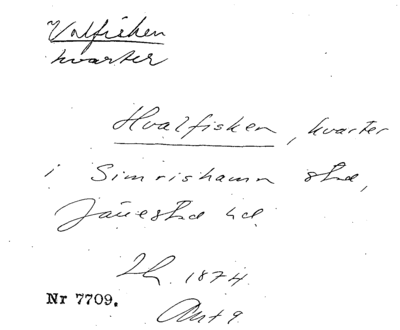 Valfisken
kvarter
Hvalfisken, kvarter
i Simrishamn std,
Järrestad hd.
1874.
Nr 7709.